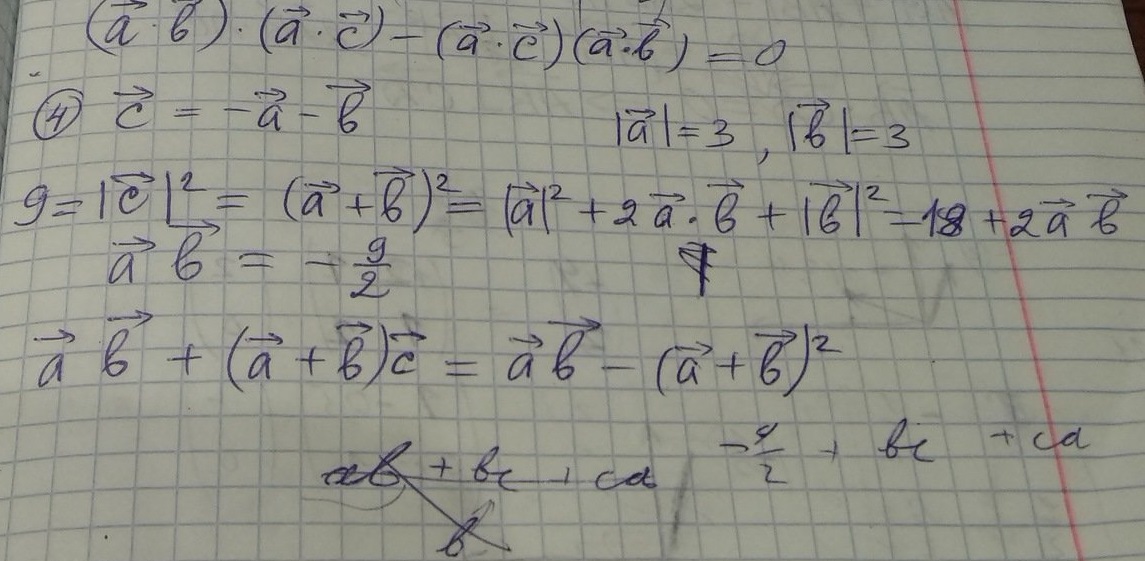 (a⃗ · b⃗) · (a⃗ · c⃗) − (a⃗ · c⃗)(a⃗ · b⃗) = 0
④ c⃗ = −a⃗ − b⃗ |a⃗| = 3 , |b⃗| = 3
9 = |c⃗|² = (a⃗ + b⃗)² = |a⃗|² + 2a⃗ · b⃗ + |b⃗|² = 18 + 2a⃗ b⃗
a⃗ b⃗ = − 9/2
a⃗ b⃗ + (a⃗ + b⃗)c⃗ = a⃗ b⃗ − (a⃗ + b⃗)²
ab + bc + ca − 9/2 + bc + ca
b